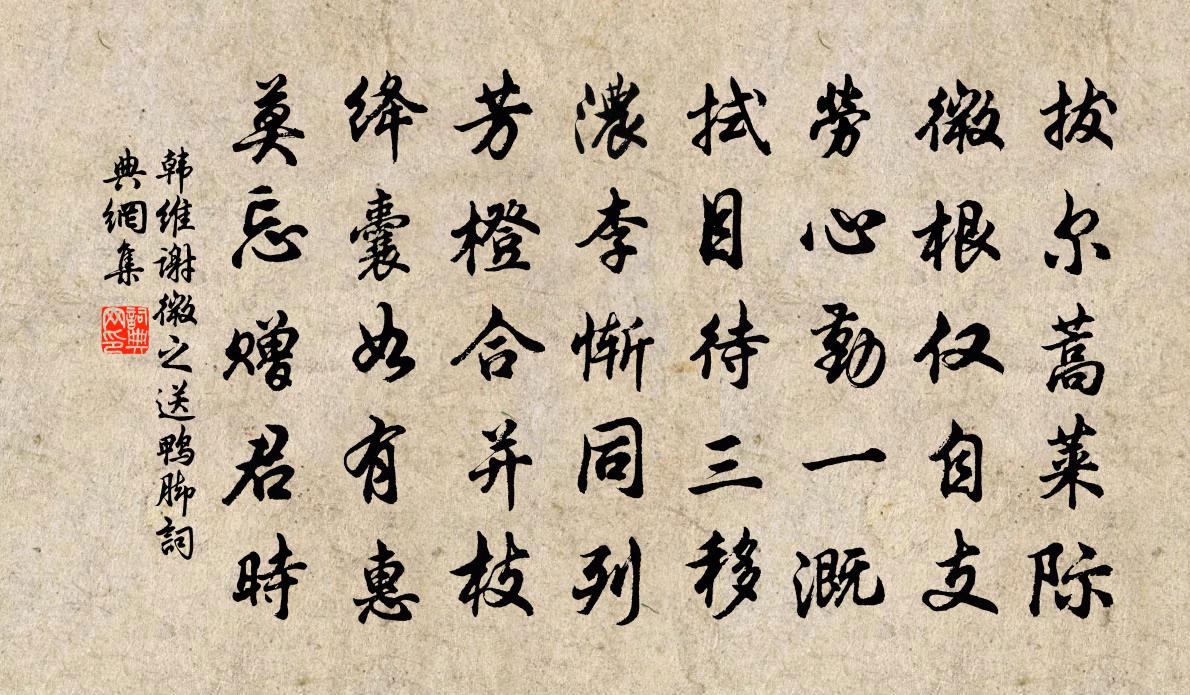 拔尔蒿莱际
微根仅自支
劳心勤一溉
拭目待三移
濃李惭同列
芳橙合并枝
绛囊如有惠
莫忘赠君時
韩维谢微之送鸭脚詞
典網集
詞典网印